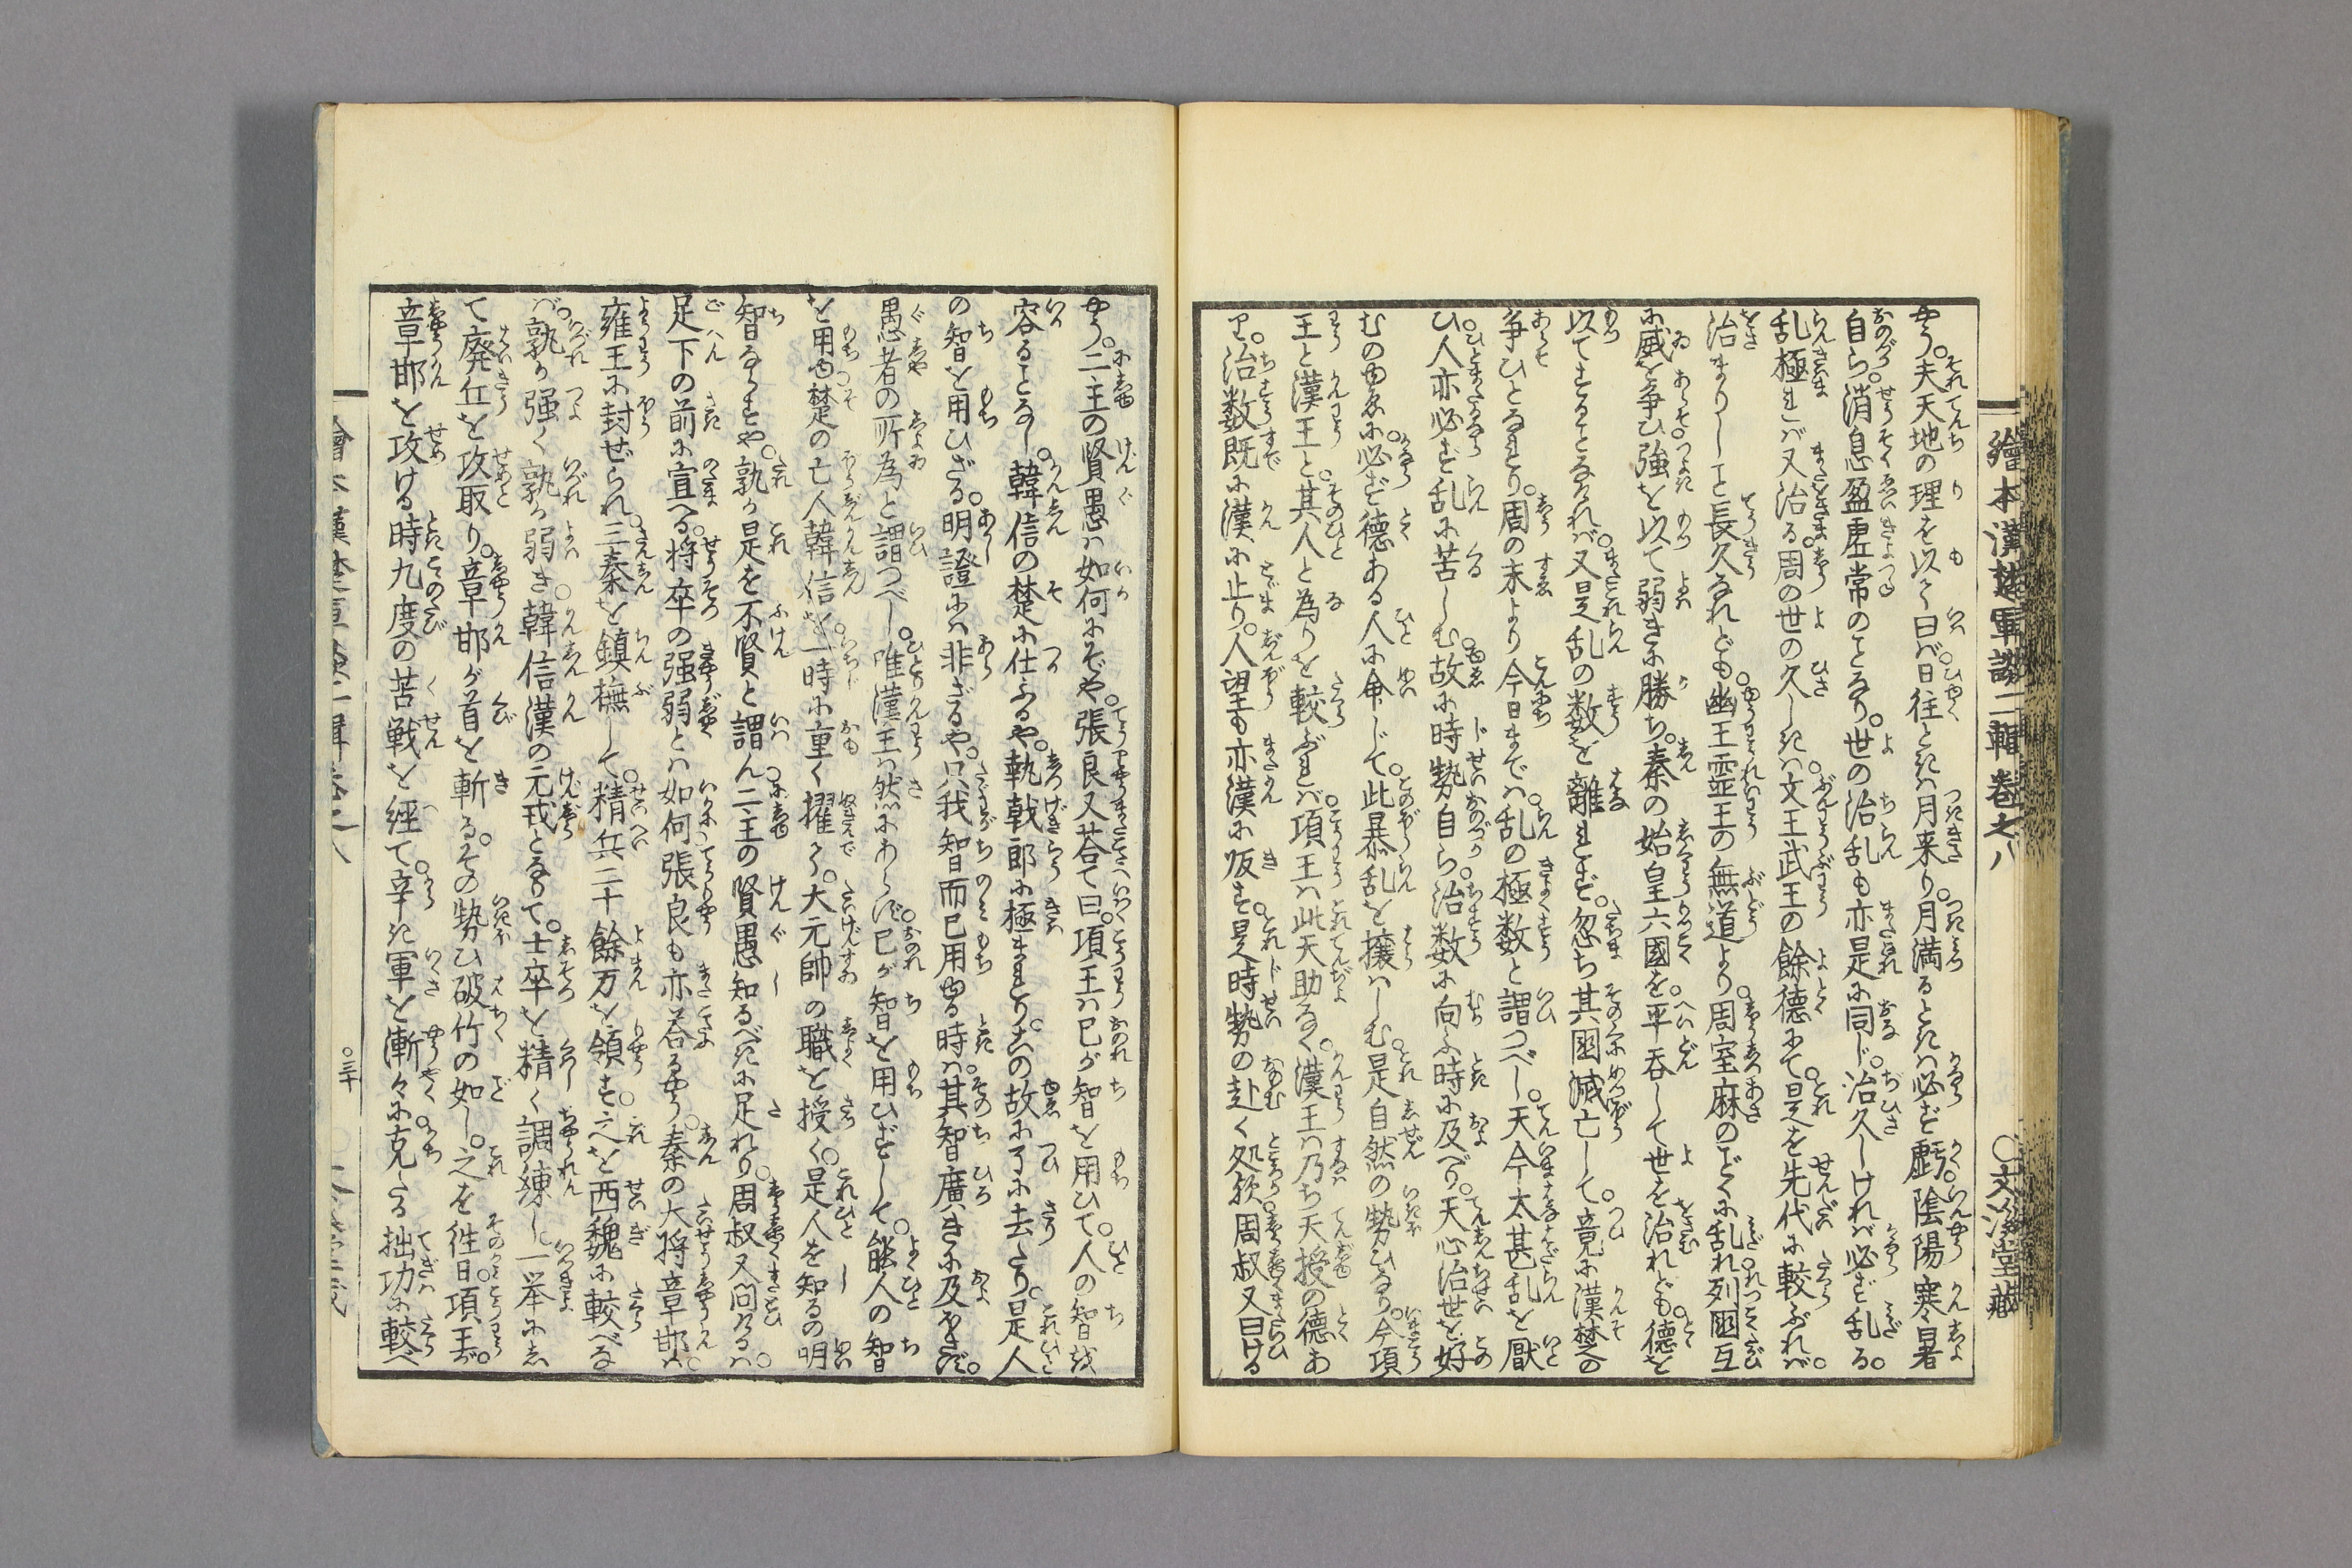 繪本漢楚軍談二輯卷之八
〇文溪堂藏
やう。夫天地の理を以て曰ば日往ときは月来り。月満るときは必ず虧。陰陽寒暑
自ら。消息盈虚常のことなり。世の治乱も亦是に同じ。治久しければ必ず乱る。
乱極まれば又治る。周の世の久しきは。文王武王の餘徳にて。是を先代に較ぶれば。
治まりしこと長久なれども。幽王霊王の無道より。周室麻のごとくに乱れ。列國互
に威を争ひ。強を以て弱きに勝ち。秦の始皇六國を。平呑して世を治れども。徳を
以てすることなければ。又是乱の数を離れず。忽ち其國滅亡して。竟に漢楚の
争ひとなれり。周の末より今日までは。乱の極数と謂つべし。天今太甚乱を厭
ひ。人亦必ず乱に苦しむ。故に時勢自ら。治数に向ふ時に及べり。天心治世を好
むのゆゑに。必ず徳ある人に命じて。此暴乱を攘はしむ。是自然の勢ひなり。今項
王と漢王と。其人と為りを較ぶれば。項王は此天助なく。漢王は乃ち天授の徳あ
り。治数既に漢に止り。人望も亦漢に皈す。是時勢の赴く処欤。周叔又曰ける
やう。二主の賢愚は如何にぞや。張良又荅て曰。項王は己が智を用ひて。人の智を
容ることなし。韓信の楚に仕ふるや。執戟郎に極まれり。其の故に了に去たり。是人
の智を用ひざる。明證には非ざるや。只我智而已用ゆる時は。其智廣きに及ばず。
愚者の所為と謂つべし。唯漢王は然にあらず。己が智を用ひずして。能人の智
を用ゆ。楚の亡人韓信を。一時に重く擢て。大元帥の職を授く。是人を知るの明
智ならずや。孰か是を不賢と謂ん。二主の賢愚知るべきに足れり。周叔又問けるは。
足下の前に宣へる。将卒の强弱とは如何。張良も亦荅るやう。秦の大将章邯は。
雍王に封ぜられ。三秦を鎮撫して。精兵二十餘万を領す。之を西魏に較べな
ば。孰か强く孰か弱き。韓信漢の元戎となりて。士卒を精く調練し。一挙にし
て廃丘を攻取り。章邯が首を斬る。その勢ひ破竹の如し。之を徃日。項王が。
章邯を攻ける時九度の苦戦を経て。辛き軍を漸々に克たる拙功に較べ
〇三十